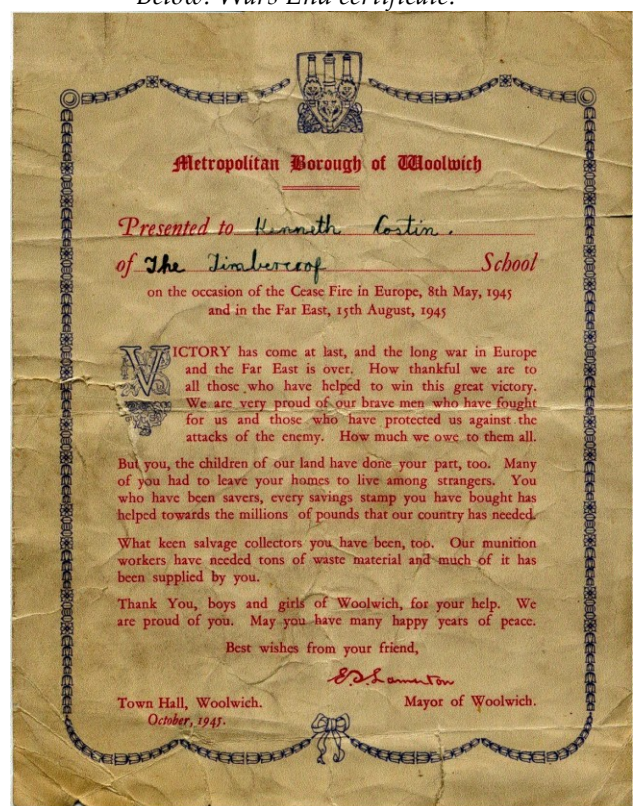 Below: Wars End certificate.
Metropolitan Borough of Woolwich
Presented to Kenneth Costin.
of The Timbercrof School
on the occasion of the Cease Fire in Europe, 8th May, 1945
and in the Far East, 15th August, 1945
VICTORY has come at last, and the long war in Europe
and the Far East is over. How thankful we are to
all those who have helped to win this great victory.
We are very proud of our brave men who have fought
for us and those who have protected us against the
attacks of the enemy. How much we owe to them all.
But you, the children of our land have done your part, too. Many
of you had to leave your homes to live among strangers. You
who have been savers, every savings stamp you have bought has
helped towards the millions of pounds that our country has needed.
What keen salvage collectors you have been, too. Our munition
workers have needed tons of waste material and much of it has
been supplied by you.
Thank You, boys and girls of Woolwich, for your help. We
are proud of you. May you have many happy years of peace.
Best wishes from your friend,
Town Hall, Woolwich. Mayor of Woolwich.
October, 1945.